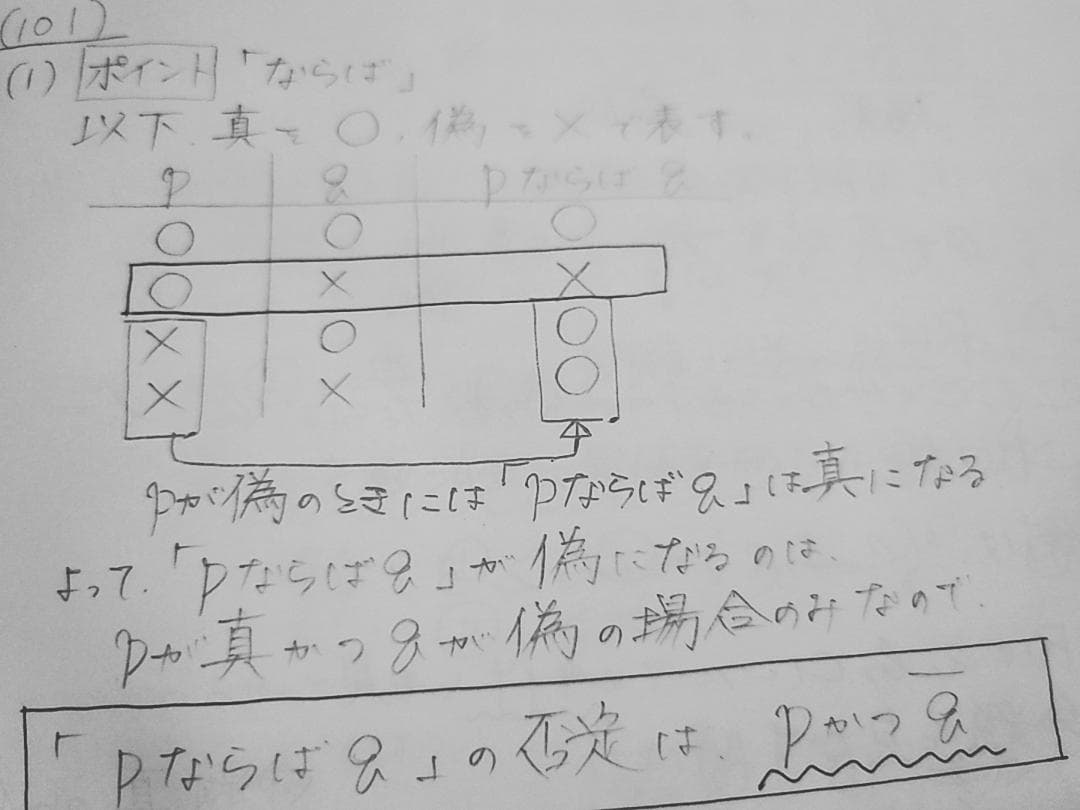 (101)
(1) ポイント 「ならば」
以下、真を○、偽を×で表す。
p q pならばq
○ ○ ○
○ × ×
× ○ ○
× × ○
pが偽のときには「pならばq」は真になる
よって、「pならばq」が偽になるのは、
pが真かつqが偽の場合のみなので、
「pならばq」の否定は、pかつq̅